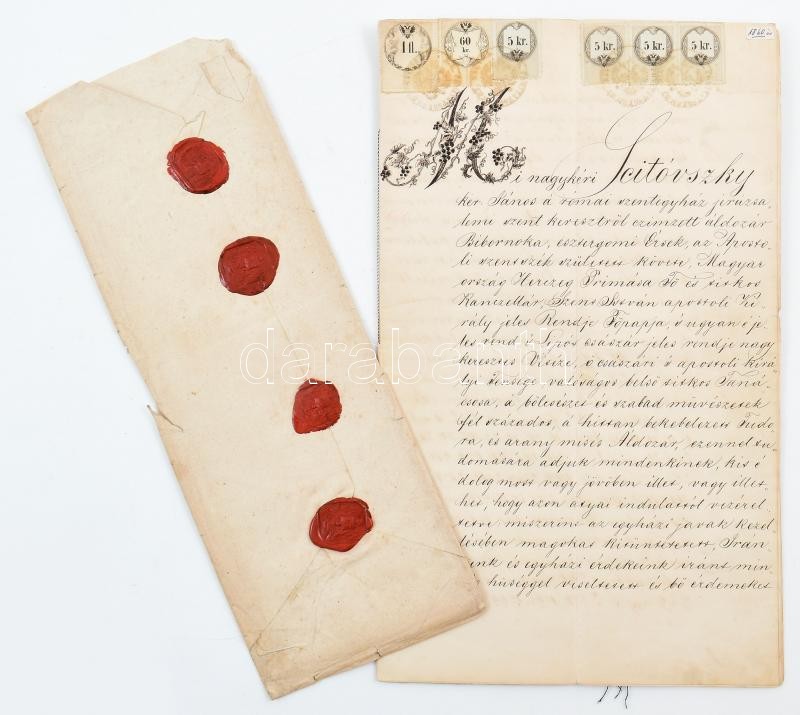 1 fl. 60 kr. 5 kr. 5 kr. 5 kr. 5 kr. 1860
Mi nagykéri Scitóvszky
ker. János á római szentegyház jeruzsá,
lemi szent keresztről czimzett áldozár
Bibornoka, esztergomi Érsek, az Aposto,
li szentszék született követe, Magyar
ország Herczeg Primása Fő és titkos
Kanczellár, Szent István apostoli Ki,
rály jeles Rendje Főpapja, s ugyan i je,
les rend s Lipót császár jeles rendje nagy
keresztes Vitéze, ő császári s apostoli kirá,
lyi valóságos belső titkos Taná,
csosa, á bölcsészet és szabad művészetek
fél százados, á hittan bekebelezett Tudo,
ra, és arany misés Áldozár, ezennel tu,
domására adjuk mindenkinek, kit é
dolog most vagy jövőben illet, vagy illet,
het, hogy azon atyai indulattól vezérel,
tetve miszerint az egyházi javak keze,
lésében magokat kitüntetett, Irán,
tunk és egyházi érdekeink iránt min,
hűséggel viseltetett és bő érdemeket
darabanth